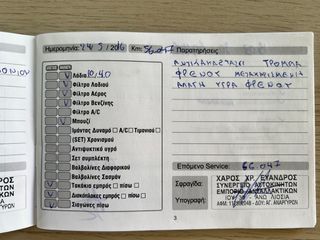 Ημερομηνία: 24/5/2016 Km: 56.047 Παρατηρήσεις
Λάδια 10/40
Φίλτρο Λαδιού
Φίλτρο Αέρος
Φίλτρο Βενζίνης
Φίλτρο A/C
Μπουζί
Ιμάντας Δυναμό A/C Τιμονιού
(SET) Χρονισμού
Αντιψυκτικό υγρό
Σετ συμπλέκτη
Βαλβολίνες Διαφορικού
Βαλβολίνες Σασμάν
Τακάκια εμπρός πίσω
Δισκόπλακες εμπρός πίσω
Σιαγώνες πίσω
ΑΝΤΙΚΑΤΑΣΤΑΣΗ ΤΡΟΜΠΑ
ΦΡΕΝΟΥ ΜΕΤΑΧΕΙΡΙΣΜΕΝΗ
ΑΛΛΑΓΗ ΥΓΡΑ ΦΡΕΝΟΥ
Επόμενο Service: 66.047
Σφραγίδα:
Υπογραφή:
ΧΑΡΟΣ ΧΡ. ΕΥΑΝΔΡΟΣ
ΣΥΝΕΡΓΕΙΟ ΑΥΤΟΚΙΝΗΤΩΝ
ΕΜΠΟΡΙΟ ΑΝΤΑΛΛΑΚΤΙΚΩΝ
ΑΝΩ ΛΙΟΣΙΑ
ΔΟΥ: ΑΓ. ΑΝΑΡΓΥΡΩΝ
3